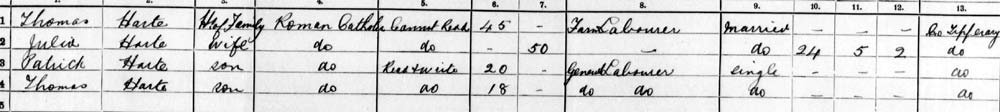 1. 2. 3. 4. 5. 6. 7. 8. 9. 10. 11. 12. 13.
1 Thomas Harte Hd of Family Roman Catholic Cannot Read 45 - Farm Labourer Married - - - Co Tipperary
2 Julia Harte Wife do do - 50 - do 24 5 2 do
3 Patrick Harte son do Read & write 20 - General Labourer single - - - do
4 Thomas Harte son do do 18 - do do do - - - do
5